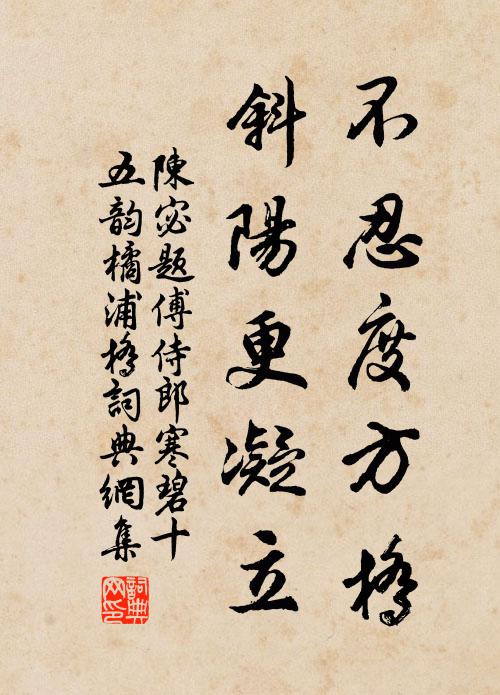 不忍度方橋
斜陽更凝立
陳宓題傅侍郎寒碧十
五韵橘浦橋詞典網集
詞典网印